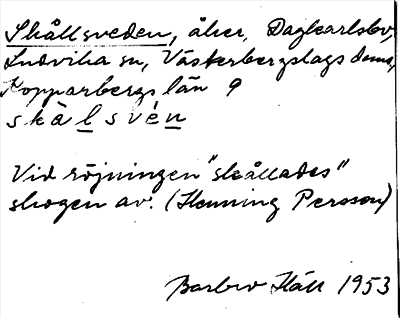 Skållsveden, åker, Dagkarlsbo,
Ludvika sn, Västerbergslags doms,
Kopparbergs län 9
skålsvén
Vid röjningen "skållades"
skogen av. (Henning Persson)
Barbro Häll 1953